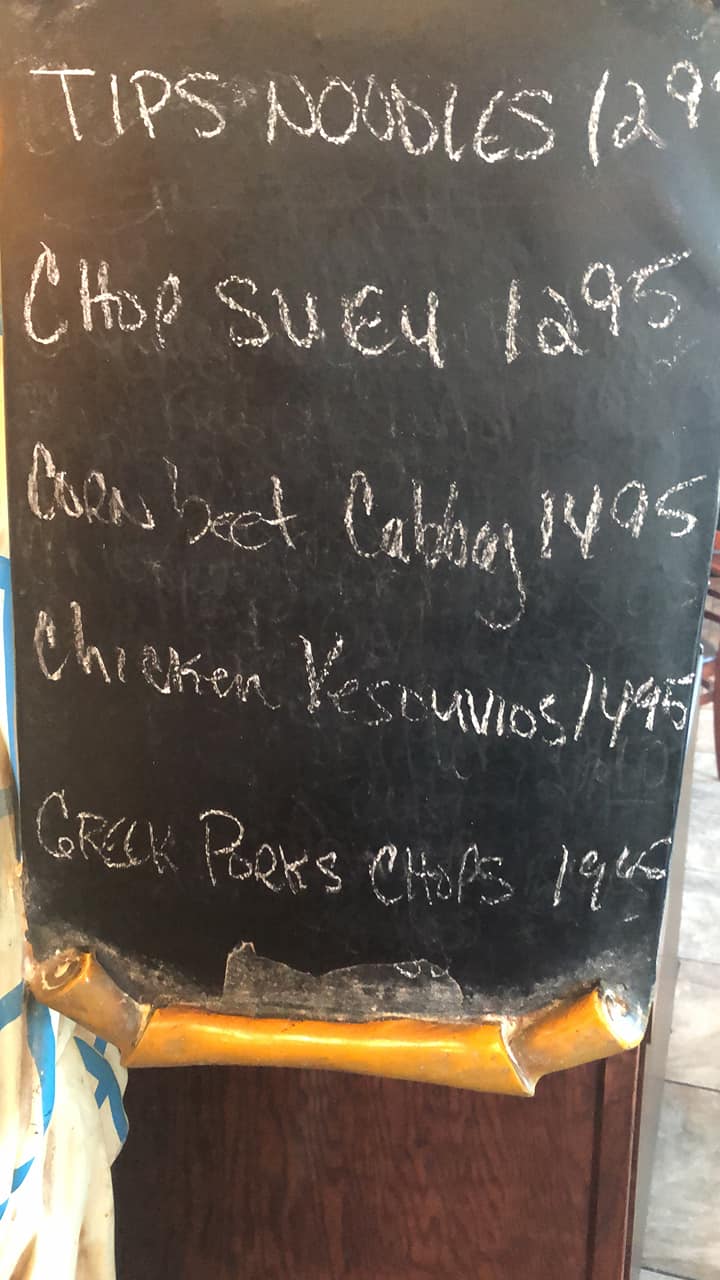 TIPS NOODLES 129
CHOP SUEY 1295
CORN beef Cabbag 1495
Chicken Vesouvios 1495
GREEK PORKS CHOPS